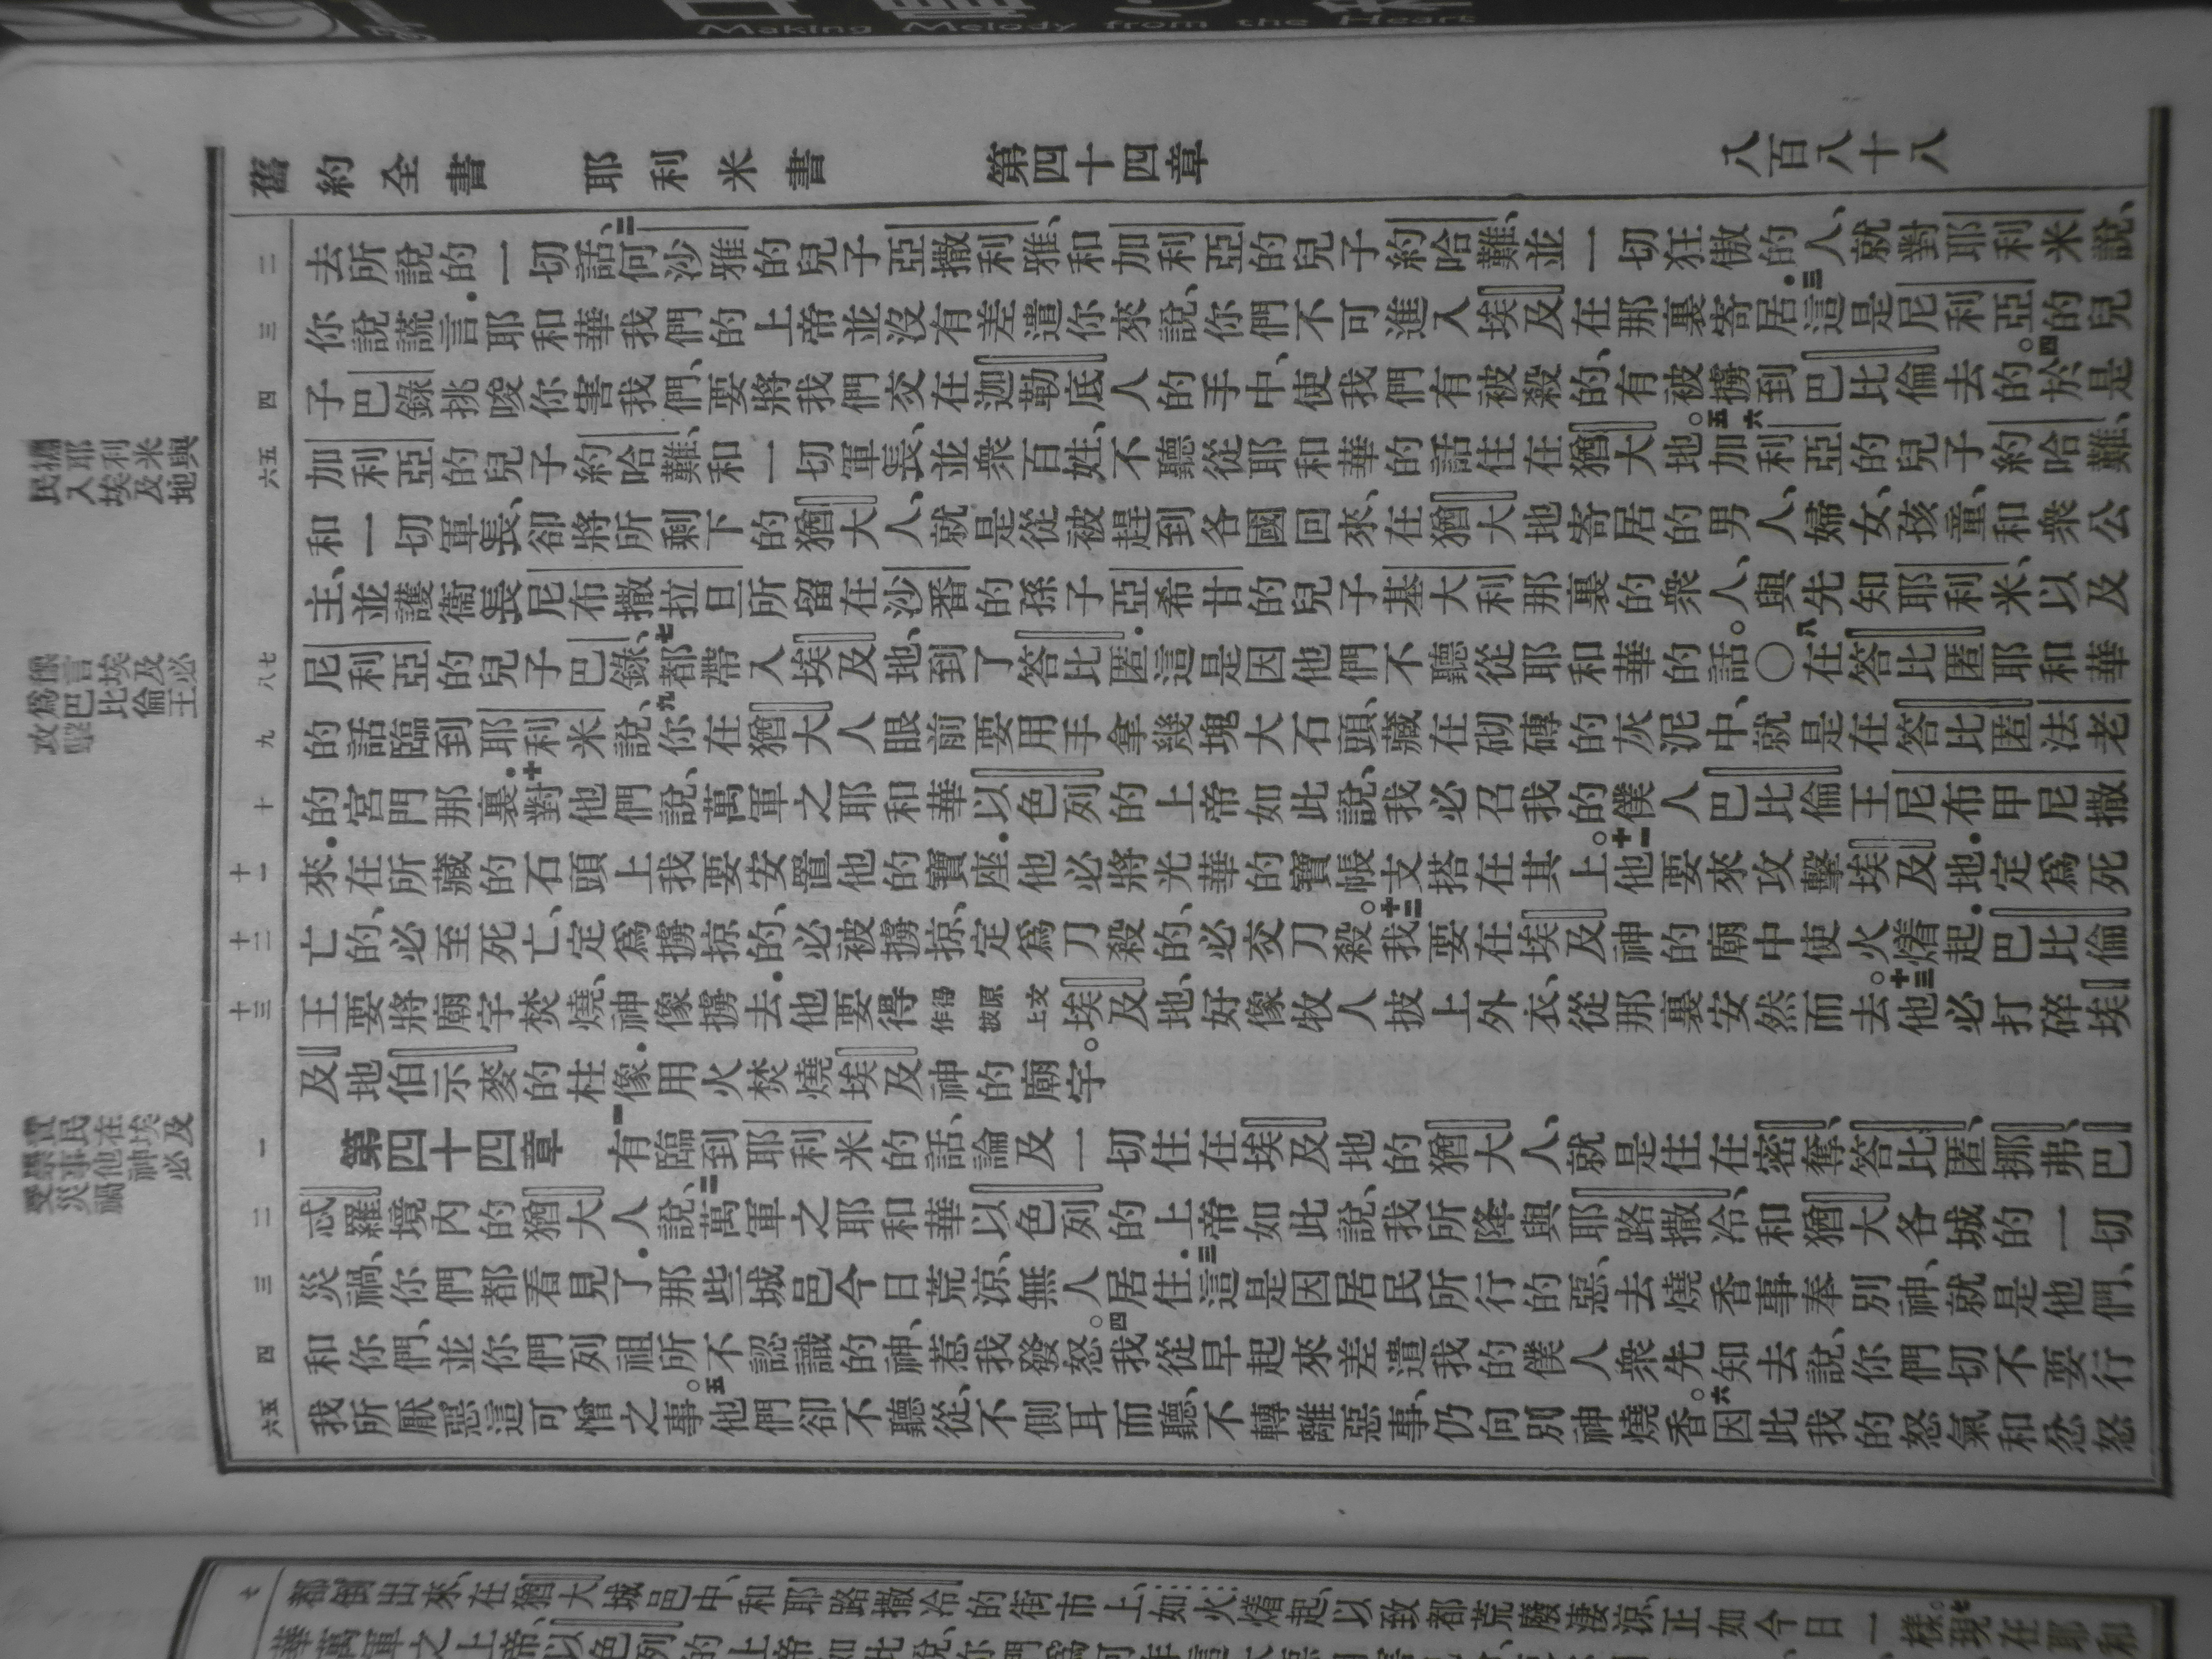 Making Melody from the Heart
舊約全書 耶利米書 第四十四章 八百八十八
二 去所說的一切話、二何沙雅的兒子亞撒利雅、和加利亞的兒子約哈難、並一切狂傲的人、就對耶利米說、
三 你說謊言．耶和華我們的上帝並沒有差遣你來說、你們不可進入埃及在那裏寄居．三這是尼利亞的兒
四 子巴錄挑唆你害我們、要將我們交在迦勒底人的手中、使我們有被殺的、有被擄到巴比倫去的。四於是
五六 加利亞的兒子約哈難、和一切軍長、並衆百姓、不聽從耶和華的話住在猶大地。五六加利亞的兒子約哈難、
和一切軍長、卻將所剩下的猶大人、就是從被趕到各國回來、在猶大地寄居的男人、婦女、孩童、和衆公
主、並護衞長尼布撒拉旦所留在沙番的孫子亞希甘的兒子基大利那裏的衆人、與先知耶利米、以及
七八 尼利亞的兒子巴錄、七都帶入埃及地、到了答比匿．這是因他們不聽從耶和華的話。〇八在答比匿耶和華
九 的話臨到耶利米說、九你在猶大人眼前要用手拿幾塊大石頭、藏在砌磚的灰泥中、就是在答比匿法老
十 的宮門那裏．十對他們說、萬軍之耶和華以色列的上帝如此說、我必召我的僕人巴比倫王尼布甲尼撒
十一 來．在所藏的石頭上我要安置他的寶座．他必將光華的寶帳支搭在其上。十一他要來攻擊埃及地．定爲死
十二 亡的、必至死亡、定爲擄掠的、必被擄掠、定爲刀殺的、必交刀殺。十二我要在埃及神的廟中使火燒起．巴比倫
十三 王要將廟宇焚燒、神像擄去．他要得得原文作披上埃及地、好像牧人披上外衣、從那裏安然而去。十三他必打碎埃
及地伯示麥的柱像．用火焚燒埃及神的廟宇。
一 第四十四章 一有臨到耶利米的話、論及一切住在埃及地的猶大人、就是住在密奪、答比匿、挪弗、巴
二 忒羅境內的猶大人、說、二萬軍之耶和華以色列的上帝如此說、我所降與耶路撒冷、和猶大各城的一切
三 災禍、你們都看見了．那些城邑今日荒涼、無人居住．三這是因居民所行的惡、去燒香事奉別神、就是他們、
四 和你們、並你們列祖所不認識的神、惹我發怒。四我從早起來差遣我的僕人衆先知去說、你們切不要行
五六 我所厭惡這可憎之事。五他們卻不聽從、不側耳而聽、不轉離惡事、仍向別神燒香。六因此我的怒氣和忿怒
民擄
入耶
埃利
及米
地與
言埃及
巴比倫王必
七 都倒出來、在猶大城邑中、和耶路撒冷的街市上、如火燒起、以致都荒廢淒涼、正如今日一樣。七現在耶和
華萬軍之上帝、以色列的上帝如此說、